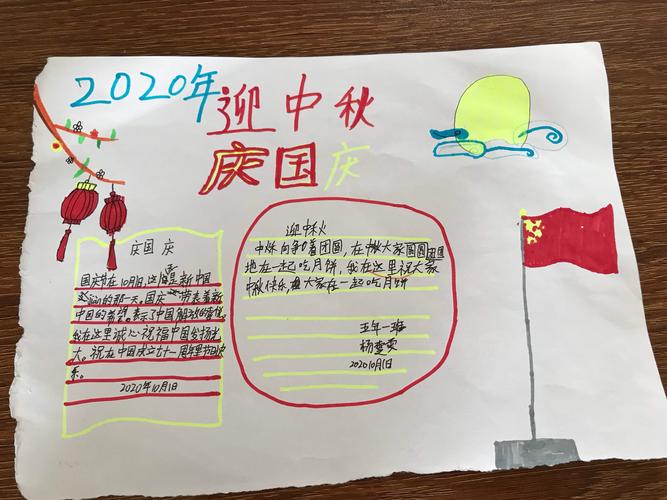 2020年
迎中秋
庆国庆
庆国庆
国庆节在10月1日,这是新中国
的那一天。国庆 带表着新
中国的 表示了中国解放的
我在这里诚心祝福中国发扬光
大。祝在中国成立七十一周年里节日快
乐。
2020年10月1日
迎中秋
中秋 着团圆,在中秋大家圆圆团团
地在一起吃月饼,我在这里祝大家
中秋快乐, 大家在一起吃月饼
五年一班
杨雯雯
2020 10月1日